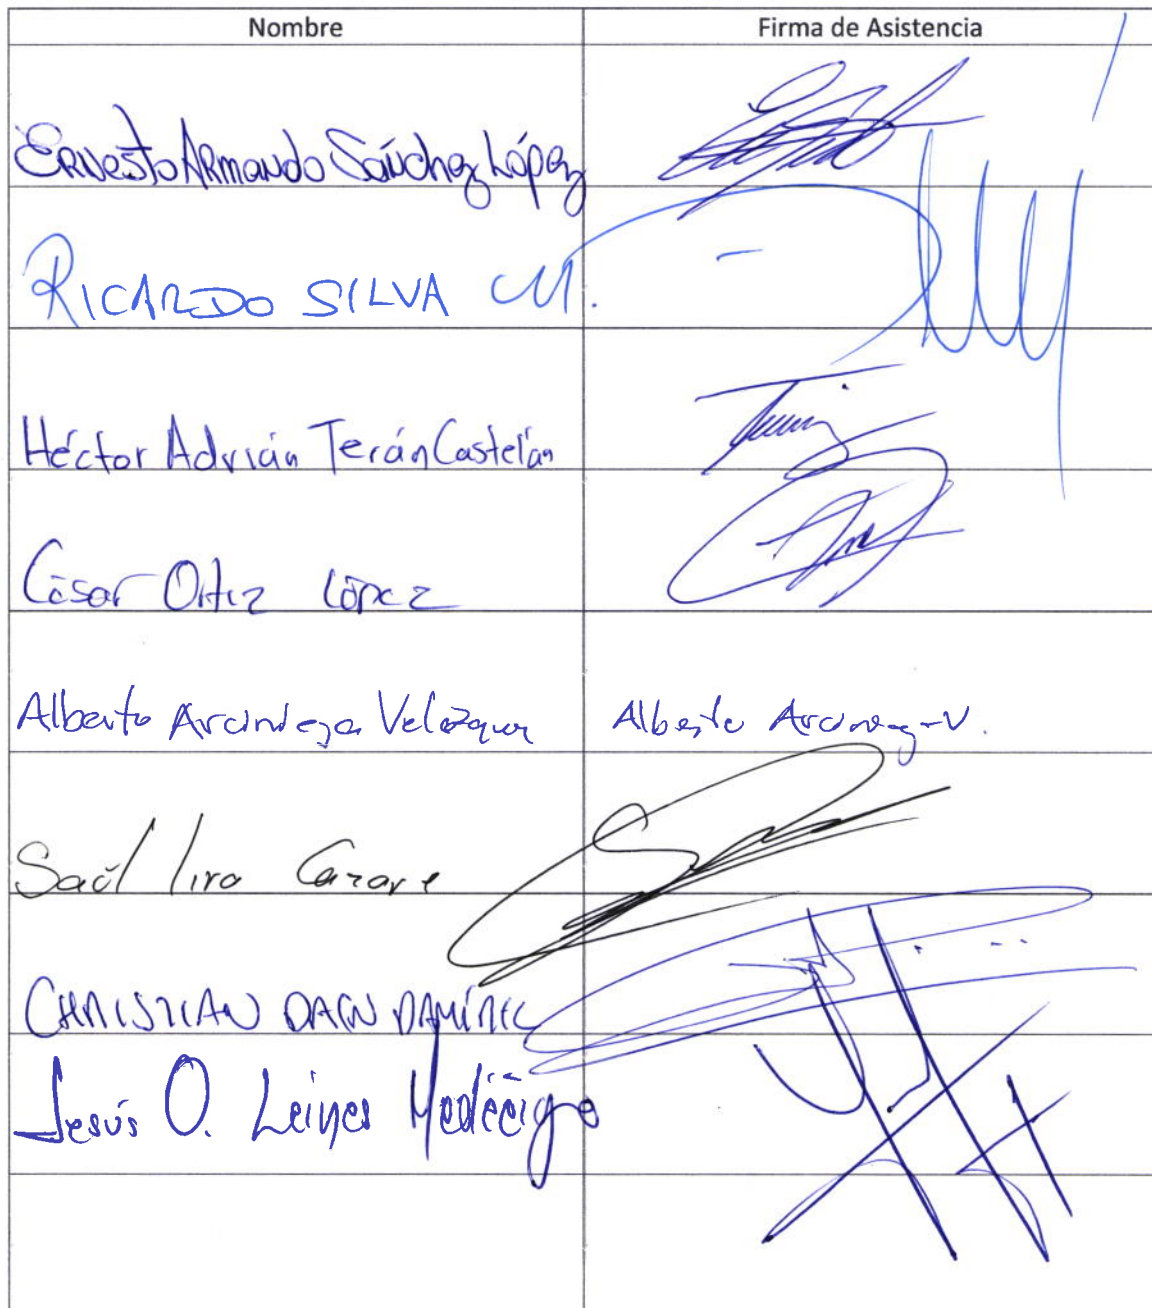 Nombre Firma de Asistencia
Ernesto Armando Sánchez López
RICARDO SILVA M.
Héctor Adrián Terán Castelán
César Ortiz López
Alberto Arciniega Velázquez Alberto
Saúl Lira
CHRISTIAN
Jesús O. Leines Medécigo